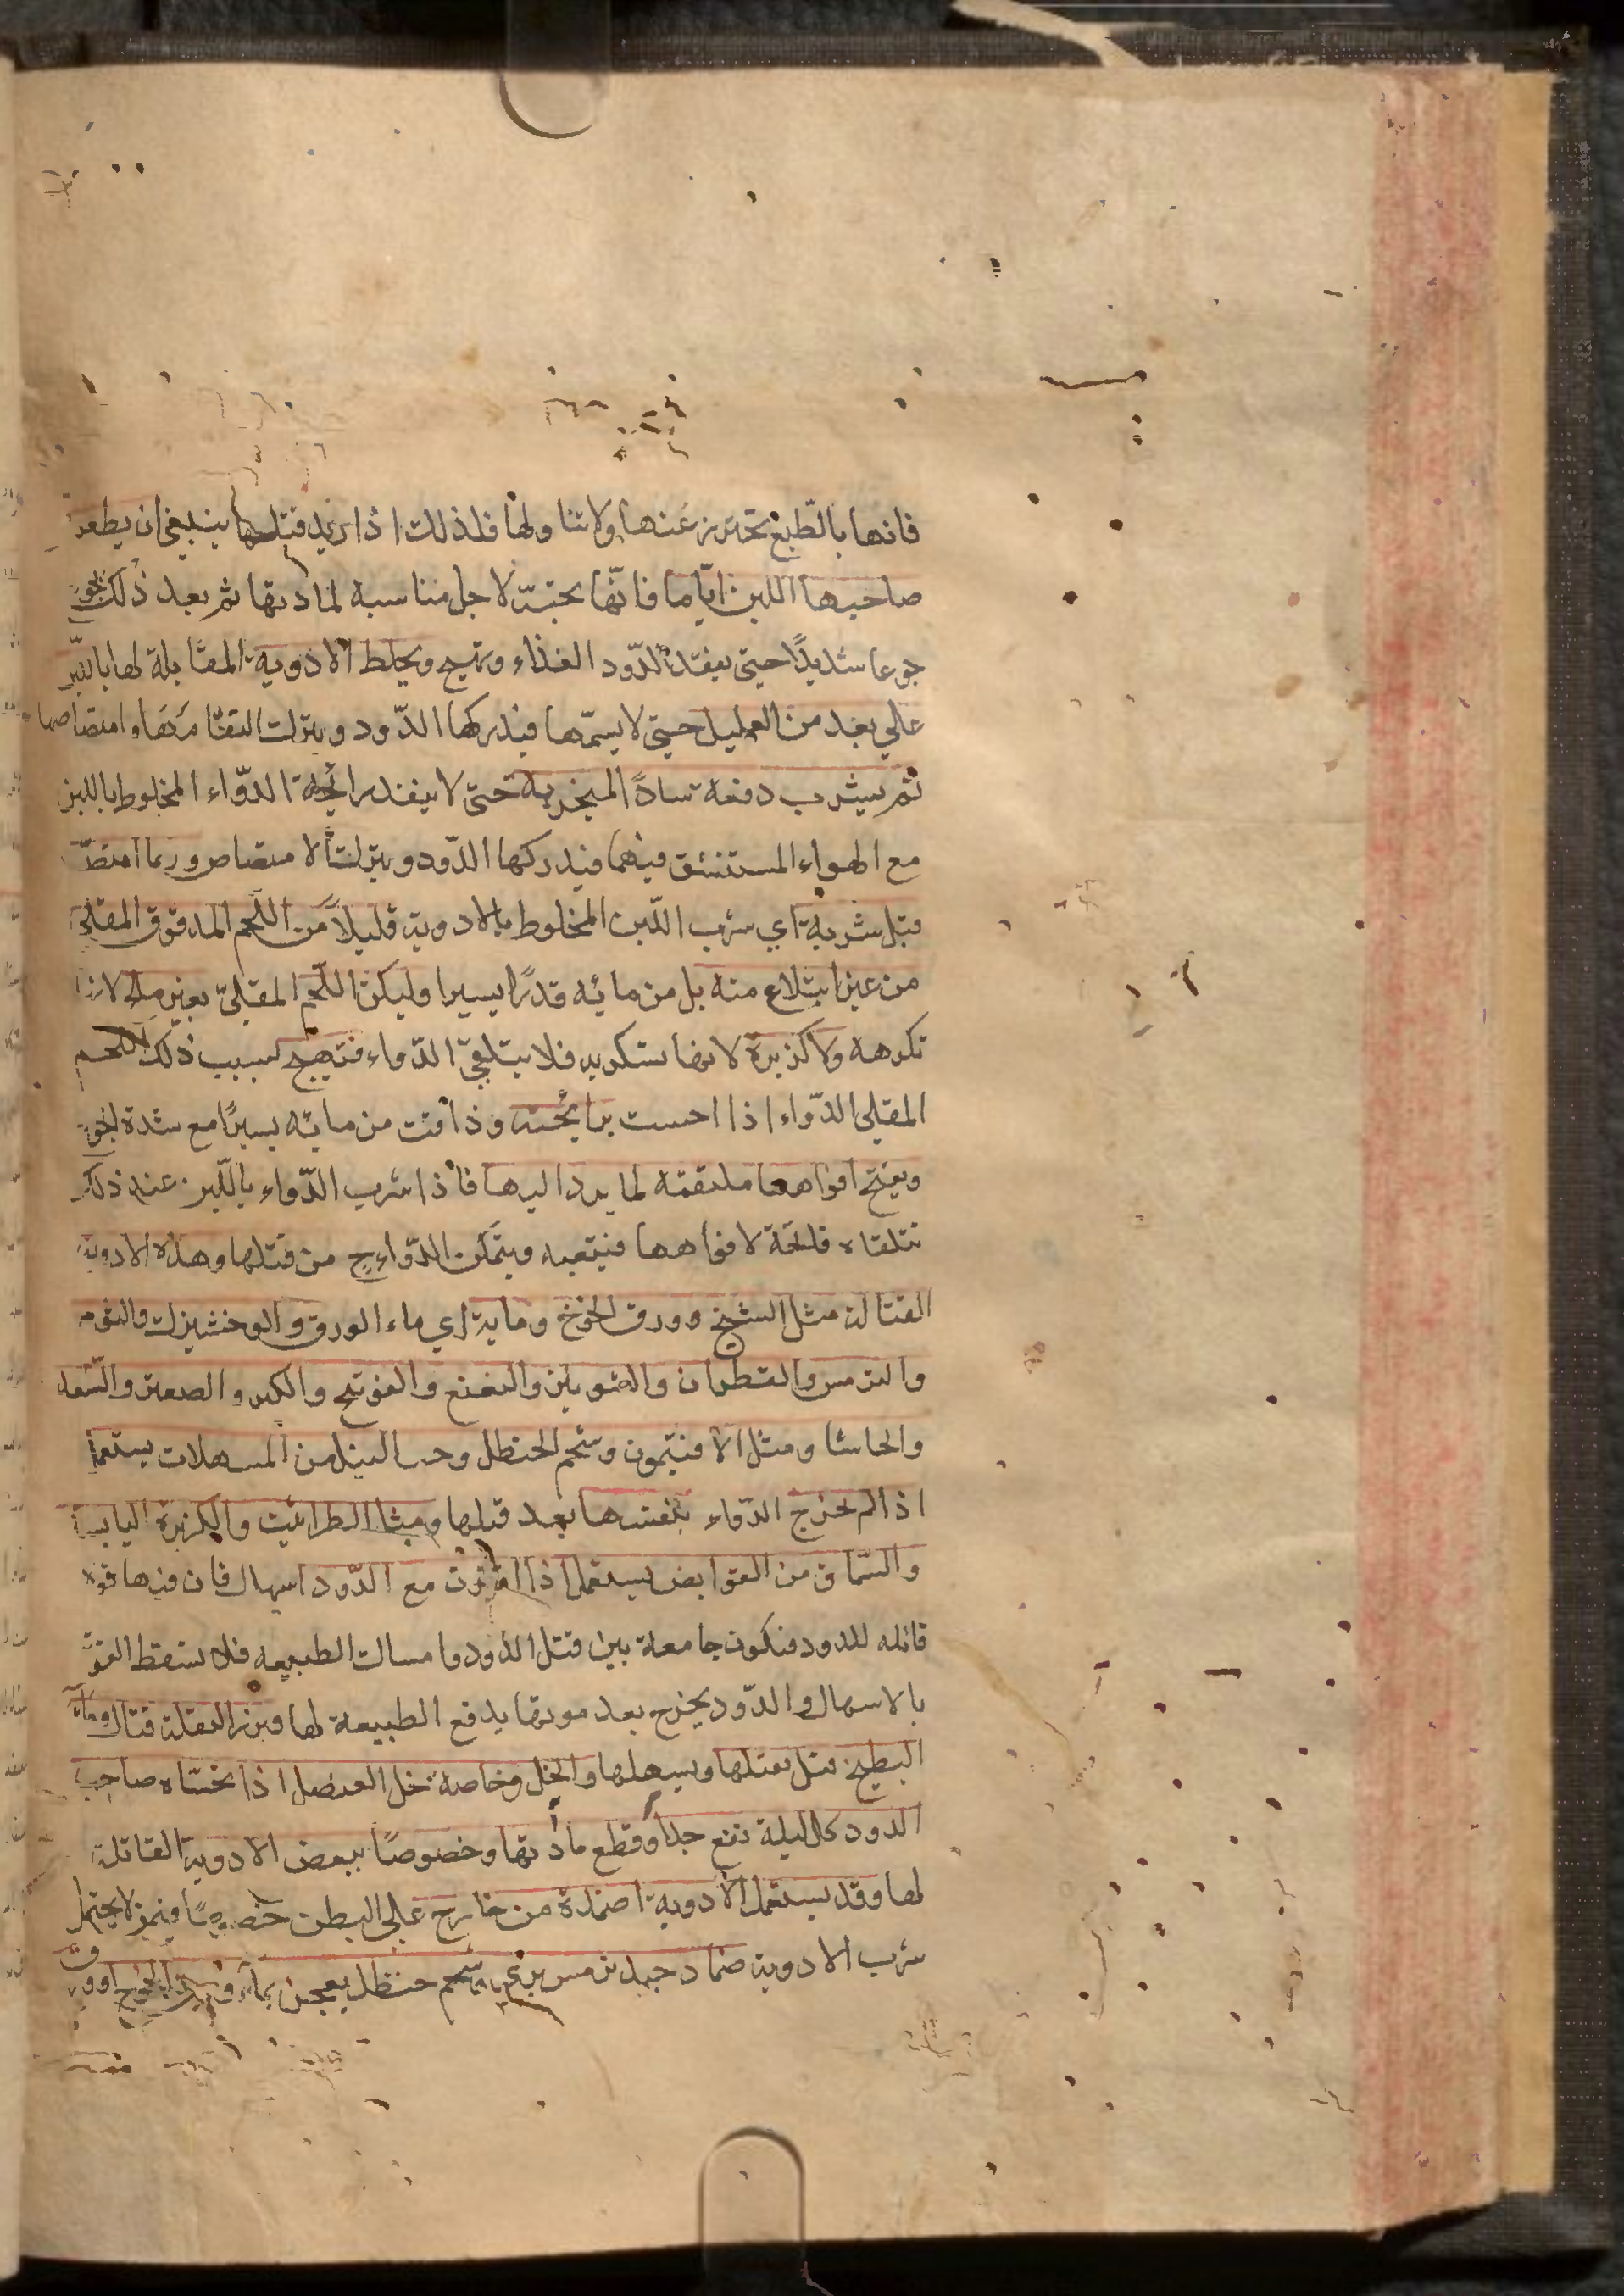 فانها بالطبع تحترز عنها ولا تناولها فلذلك اذا اريد قتلها ينبغي ان يطعم
صاحبها اللبن ايّاما فانّها تحبّه لاجل مناسبة لمادتها ثم بعد ذلك يجوع
جوعا شديدًا حتى يفقد الدّود الغذاء وتهيج ويخلط الادوية المقابلة لها باللبن
على بعد من العليل حتى لا يشمّها فيدركها الدّود ويترك التقامها وامتصاصها
ثم يشرب دفعة سادًا لمنخريه حتى لا ينفذ رائحة الدّواء المخلوط باللبن
مع الهواء المستنشق فيهما فيدركها الدّود ويترك الامتصاص وربما امتصّ
قبل شربه اي شرب اللّبن المخلوط بالادوية قليلاً من اللحم المدقوق المقلي
من غير ابتلاع منه بل من مائه قدرًا يسيرا وليكن اللّحم المقلي بغير ملح لانها
تكرهه ولا كزبرة لانها تسكر به فلا يتلقى الدّواء فتهيج بسبب ذلك اللحم
المقلي الدّواء اذا احست برائحته وذاقت من مائه يسيرًا مع شدة الجوع
ويفتح افواهها ملتقمة لما يرد اليها فاذا شرب الدّواء باللّبن عند ذلك
تتلقاه فاتحة لافواهها فيتعبه ويتمكن الدّواء ح من قتلها وهذه الادوية
القتالة مثل الشيح وورق الخوخ ومائه اي ماء الورق والوخشيزك والثوم
والترمس والقطران والشونيز والنعنع والفوتنج والكبر والصعتر والسّعد
والحاشا ومثل الافتيمون وشحم الحنظل وحب النيل من المسهلات يستعمل
اذا لم تخرج الدّواء بنفسها بعد قتلها ومثل الطراثيث والكزبرة اليابسة
والسّماق من القوابض يستعمل اذا اقترن مع الدّود اسهال فان فيها قوة
قاتله للدود فتكون جامعة بين قتل الدود وامساك الطبيعه فلا تسقط القوّة
بالاسهال والدّود يخرج بعد موتها بدفع الطبيعة لها وبزر البقلة قتال وماء
البطيخ قيل يقتلها ويسهلها والخل وخاصة خل العنصل اذا تحسّاه صاحب
الدود كل ليلة نفع جداً وقطع مادتها وخصوصًا ببعض الادوية القاتلة
لها وقد يستعمل الادوية اضمدة من خارج على البطن خصوصًا فيمن لا يحتمل
شرب الادوية ضماد جيد ترمس بري وشحم حنظل يعجن بماء ورق الخوخ اوورق